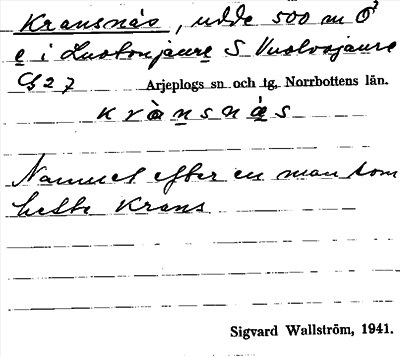 Kransnäs, udde 500 m O
e i Luokonjaure S Vuolvojaure
C 27 Arjeplogs sn och tg, Norrbottens län.
krànsnä̀s
Namnet efter en man som
hette Krans
Sigvard Wallström, 1941.